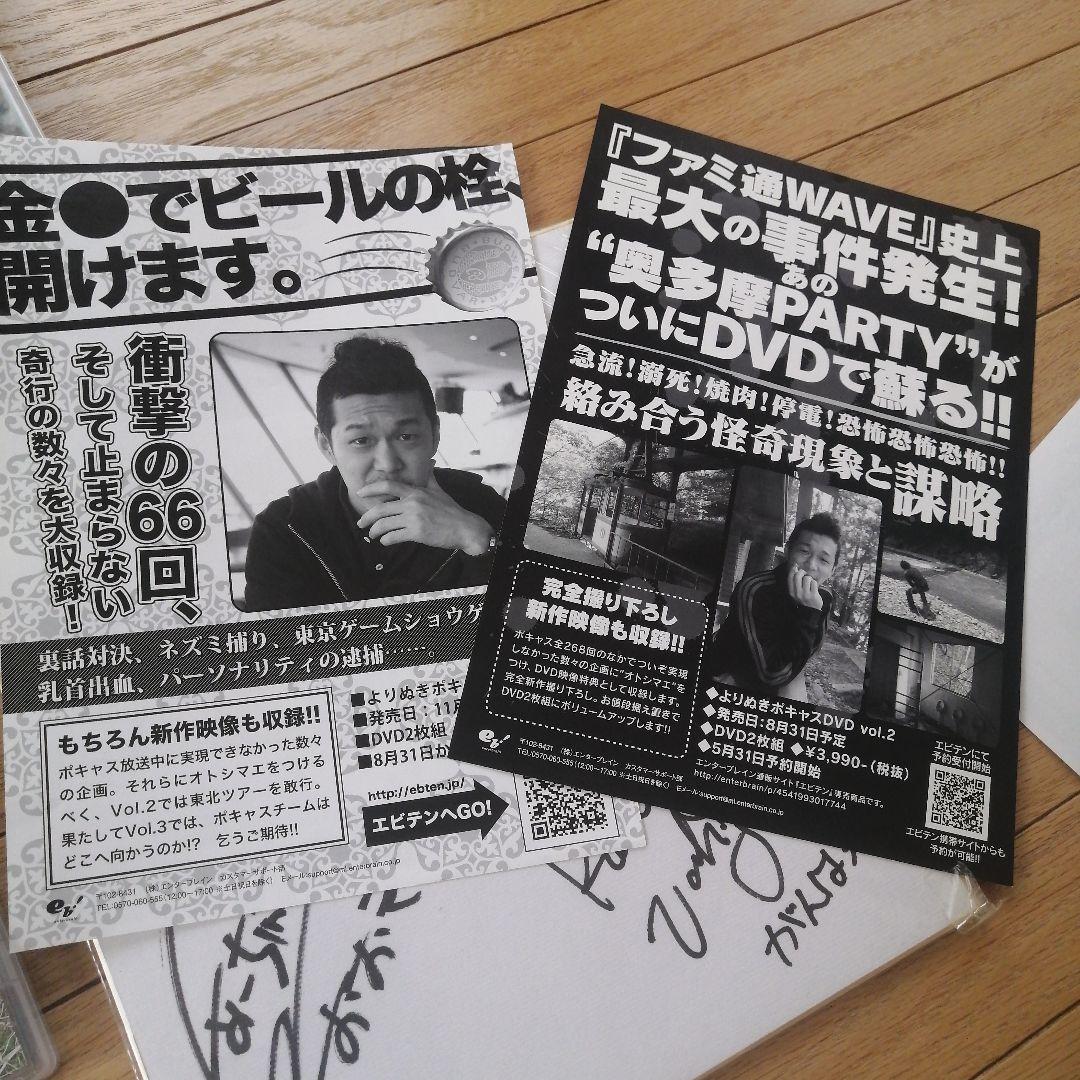 金●でビールの栓、
開けます。
衝撃の66回、
そして止まらない
奇行の数々を大収録！
裏話対決、ネズミ捕り、東京ゲームショウゲ
乳首出血、パーソナリティの逮捕……。
もちろん新作映像も収録!!
ポキャス放送中に実現できなかった数々
の企画。それらにオトシマエをつける
べく、Vol.2では東北ツアーを敢行。
果たしてVol.3では、ポキャスチームは
どこへ向かうのか!?　乞うご期待!!
■よりぬきポキ
■発売日：11月
■DVD2枚組
■8月31日か
http://ebten.jp/
エビテンへGO!
eb!
〒102-8431　（株）エンターブレイン　カスタマーサポート部
TEL:0570-060-555（12:00〜17:00 ※土日祝日を除く）　Eメール:support@ml.enterbrain.co.jp
『ファミ通WAVE』史上
最大の事件発生！
あの
“奥多摩PARTY”が
ついにDVDで蘇る!!
急流！溺死！焼肉！停電！恐怖恐怖恐怖!!
絡み合う怪奇現象と謀略
完全撮り下ろし
新作映像も収録!!
ポキャス全268回のなかでついぞ実現
しなかった数々の企画に“オトシマエ”を
つけ、DVD映像特典として収録します。
完全新作撮り下ろし。お値段据え置きで
DVD2枚組にボリュームアップします!!
◆よりぬきポキャスDVD vol.2
◆発売日:8月31日予定
◆DVD2枚組 ◆¥3,990-（税抜）
◆5月31日予約開始
エンターブレイン通販サイト『エビテン』専売商品です。
http://enterbrain/p/4541993017744
エビテンにて
予約受付開始
エビテン携帯サイトからも
予約が可能!!
eb!
〒102-8431　（株）エンターブレイン　カスタマーサポート部
TEL:0570-060-555（12:00〜17:00 ※土日祝日を除く）　Eメール:support@ml.enterbrain.co.jp